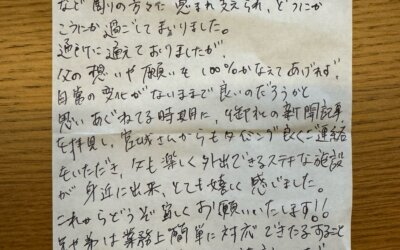 など周りの方々に恵まれ支えられ、どうにか
こうにか過ごしてまいりました。
通所に通えておりましたが、
父の想いや願いを100%かなえてあげれず、
日常の変化がないままで良いのだろうかと
思いあぐねてる時期に、御社の新聞記事
を拝見し、宮城さんからもタイミング良くご連絡
をいただき、父も楽しく外出できるステキな施設
が身近に出来、とても嬉しく感じました。
これからどうぞ宜しくお願いいたします!!
兄弟は業務上簡単に対応できたすること